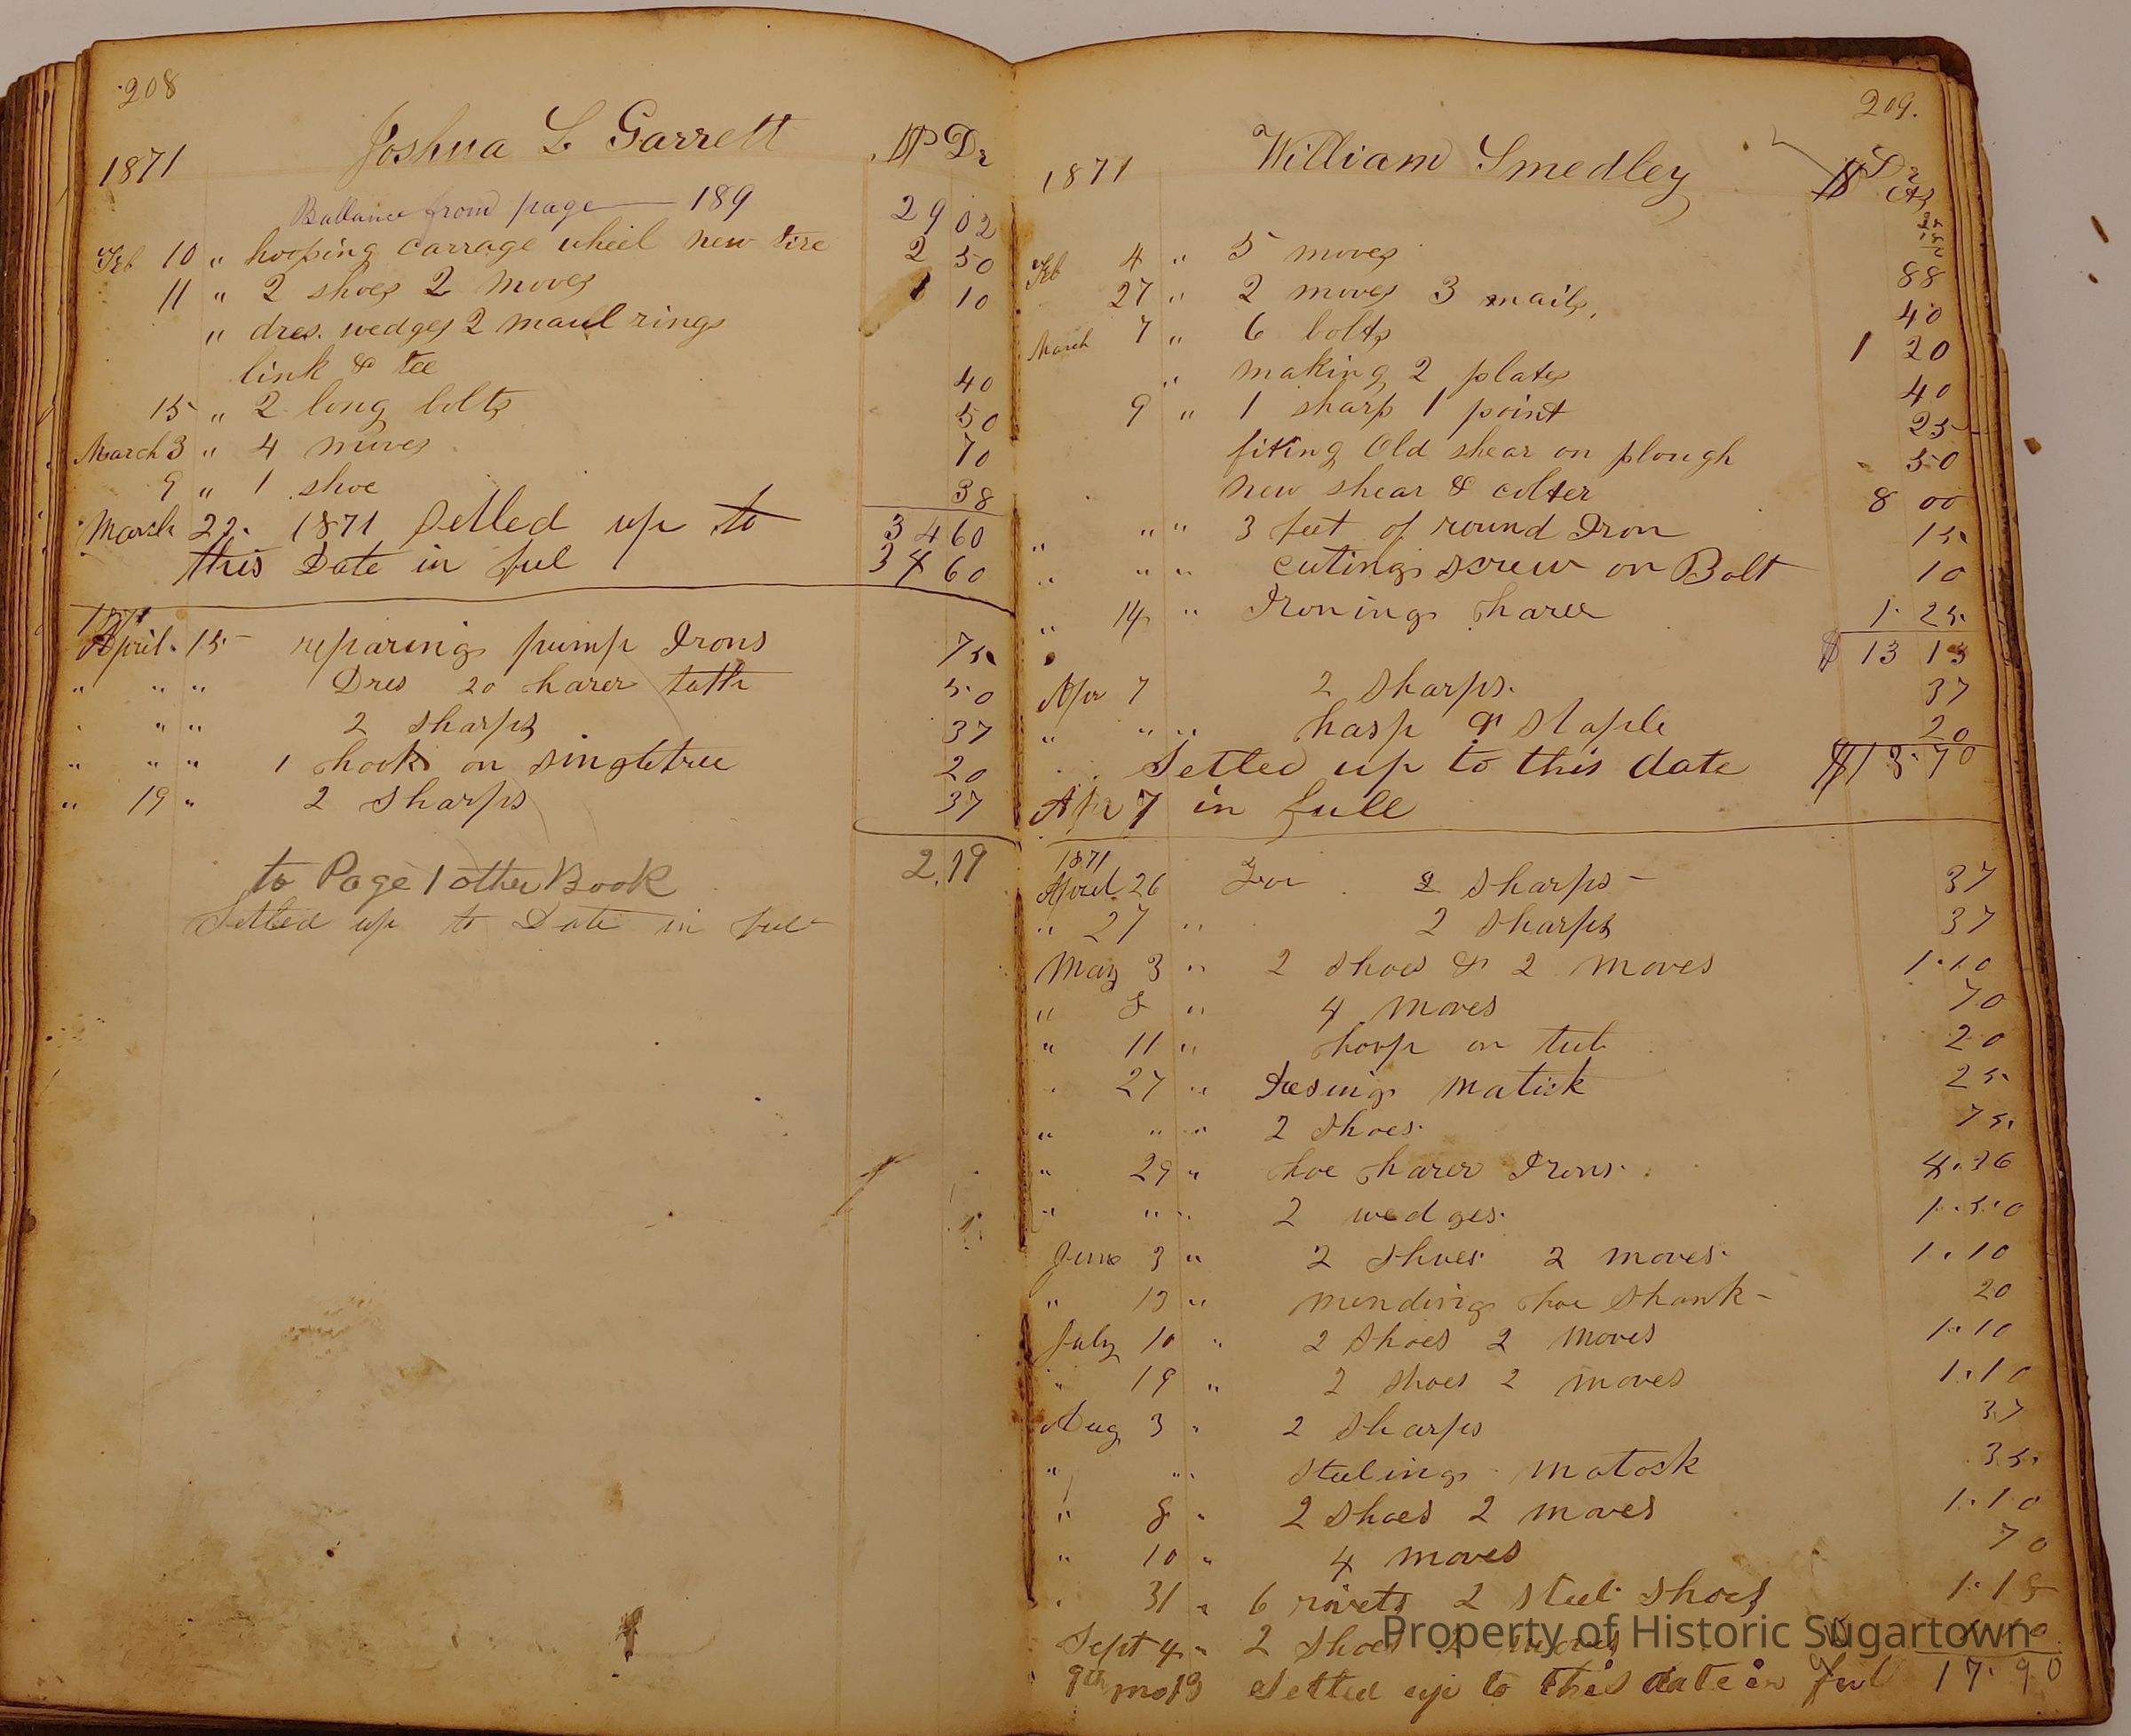 208
Joshua L Garrett
1871 $ Dr
Ballance from page 189 29 02
Feb 10 " hooping carrage wheel new tire 2 50
11 " 2 shoes 2 moves 1 10
" dres. wedges 2 maul rings
link & tee 40
15 " 2 long bolts 50
March 3 " 4 moves 70
9 " 1 shoe 38
March 22. 1871 Setled up to 34 60
this Date in ful 34 60
1871
April 15 reparing pump Irons 75
" " " Dres 20 harer teth 50
" " " 2 sharps 37
" " " 1 hook on singletree 20
" 19 " 2 sharps 37
to Page 1 other Book 2,19
Setled up to Date in ful
209.
William Smedley
1871 $ Dr Cts
Feb 4 " 5 moves 88
27 " 2 moves 3 nails, 40
March 7 " 6 bolts 1 20
" making 2 plates 40
9 " 1 sharp 1 point 25
fiting Old shear on plough 50
new shear & colter 8 00
" " " 3 feet of round Iron 15
" " " cuting screw on Bolt 10
" 14 " Ironing harer 1. 25
$ 13 13
Apr 7 2 sharps. 37
" " " hasp & staple 20
Setled up to this date $13.70
Apr 7 in full
1871
April 26 For 2 sharps 37
" 27 " 2 sharps 37
May 3 " 2 shoes & 2 moves 1.10
" 8 " 4 moves 70
" 11 " hoop on tub 20
" 27 " matick 25
" " " 2 shoes. 75
" 29 " hoe harer Irons. 4.36
" " " 2 wedges. 1.50
June 3 " 2 shoes 2 moves. 1.10
" 13 " mending hoe shank 20
July 10 " 2 shoes 2 moves 1.10
" 19 " 2 shoes 2 moves 1.10
Aug 3 " 2 sharps 37
" " steeling matock 35
" 8 " 2 shoes 2 moves 1.10
" 10 " 4 moves 70
" 31 " 6 rivets 2 steel shoes 1.18
Sept 4 " 2 shoes 2 moves
9th mo 13 Setled up to this date in ful 17.90
Property of Historic Sugartown